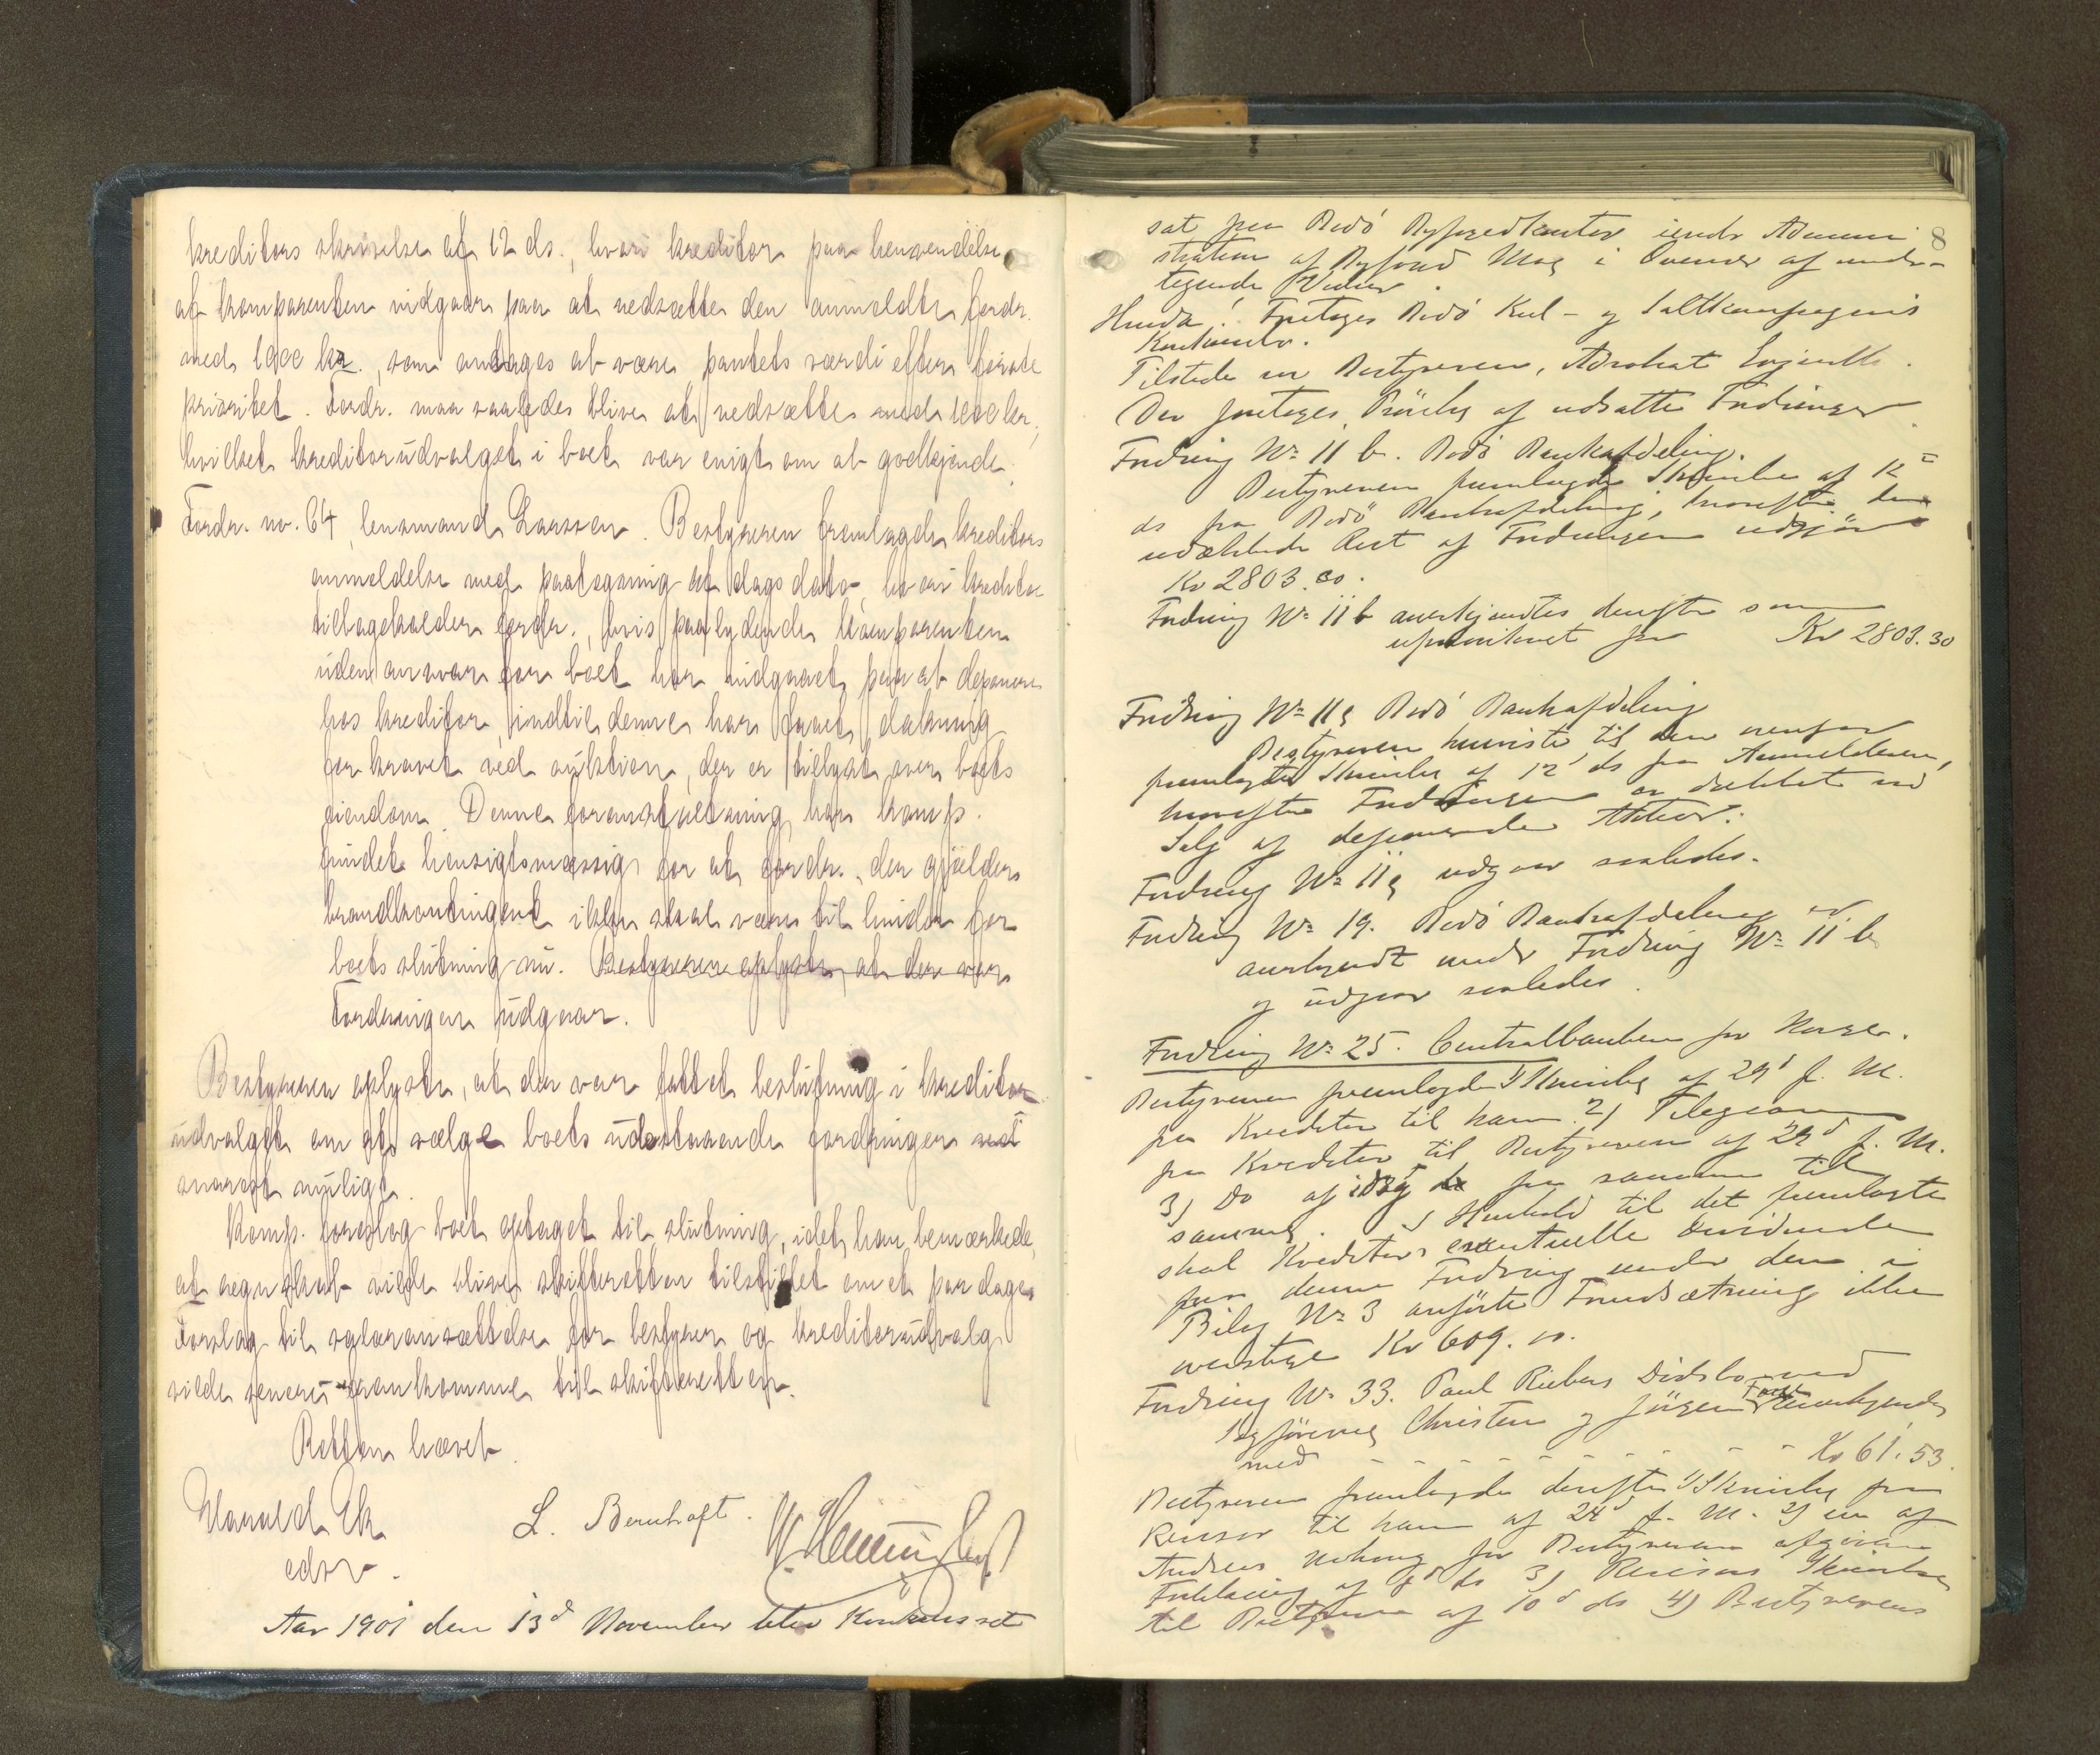 kreditors skrivelse af 12 ds., hvori kreditor paa henvendelse
af komparenten indgaar paa at nedsætte den anmeldte fordr.
med 1000 kr., som antages at være pantets værdi efter første
prioritet. Fordr. maa saaledes blive at nedsætte med 1000 kr.,
hvilket kreditorudvalget i boet var enigt om at godkjende.
Fordr. no. 64, lensmand Larssen. Bestyreren fremlagde kreditors
anmeldelse med paategning af dags dato, hvori kreditor
tilbagekalder fordr., hvis paalydende komparenten
uden ansvar for boet har indgaaet paa at deponere
hos kreditor, indtil denne har faaet dækning
for kravet ved auktion, der er tillyst over boets
eiendom. Denne foranstaltning har komp.
fundet hensigtsmæssig for at fordr., der gjælder
brandkontingent ikke skal være til hinder for
boets slutning nu. Bestyreren oplyste, at der var
Fordringen udgaar.
Bestyreren oplyste, at der var fattet beslutning i kreditor
udvalget om at sælge boets udestaaende fordringer
snarest muligt.
Komp. foreslog boet optaget til slutning, idet han bemærkede,
at regnskab vilde blive skifteretten tilstillet om et par dage.
Forslag til salæransættelse for bestyrer og kreditorudvalg
vilde senere fremkomme til skifteretten.
Retten hævet.
Harald Ek
edsv.
L. Bernhoft.
Aar 1901 den 13d November blev Konkursret
8
sat paa Bodø Byfogedkontor under Admini
stration af Byfoged Mag i Overvær af under-
tegnede Vidner.
Hvorda: Foretoges Bodø Kul- og Saltkompagnis
Konkursbo.
Tilstede var Bestyreren, Advokat
Der foretoges Prøvelse af udsatte Fordringer
Fordring No 11 b. Bodø Bankafdeling.
Bestyreren fremlagde Skrivelse af 12
ds fra Bodø Bankafdeling, hvorefter den
udækkede Rest af Fordringen udgjør
Kr 2803.30.
Fordring No 11 b anerkjendtes derefter som
uprioriteret for Kr 2803.30
Fordring No 11 c Bodø Bankafdeling
Bestyreren henviste til den ovenfor
fremlagte Skrivelse af 12' ds fra Anmelderen,
hvorefter Fordringen er dækket ved
Salg af deponerede Aktier.
Fordring No 11 c udgaar saaledes.
Fordring No 19. Bodø Bankafdeling er
anerkjendt under Fordring No 11 b
og udgaar saaledes.
Fordring No 25. Centralbanken for Norge.
Bestyreren fremlagde 1) Skrivelse af 29' f. M.
fra Kreditor til ham. 2) Telegram
fra Kreditor til Bestyreren af 29d f. M.
3) Do af idag fra samme til
samme. I Henhold til det fremlagte
skal Kreditors eventuelle Dividende
paa denne Fordring under den i
Bilag No 3 anførte Forudsætning ikke
overstige Kr 609.
Fordring No 33. Paul Riebers Dødsbo ved
Sagførerne Christen og Jørgen anerkjendes
med - - - - - - - Kr 61.53.
Bestyreren fremlagde derefter 1) Skrivelse fra
Revisor til ham af 24d f. M. 2) en af
Andreas for Bestyreren afgiven
Forklaring af ds 3) Revisors Skrivelse
til Bestyreren af 10d ds 4) Bestyrerens